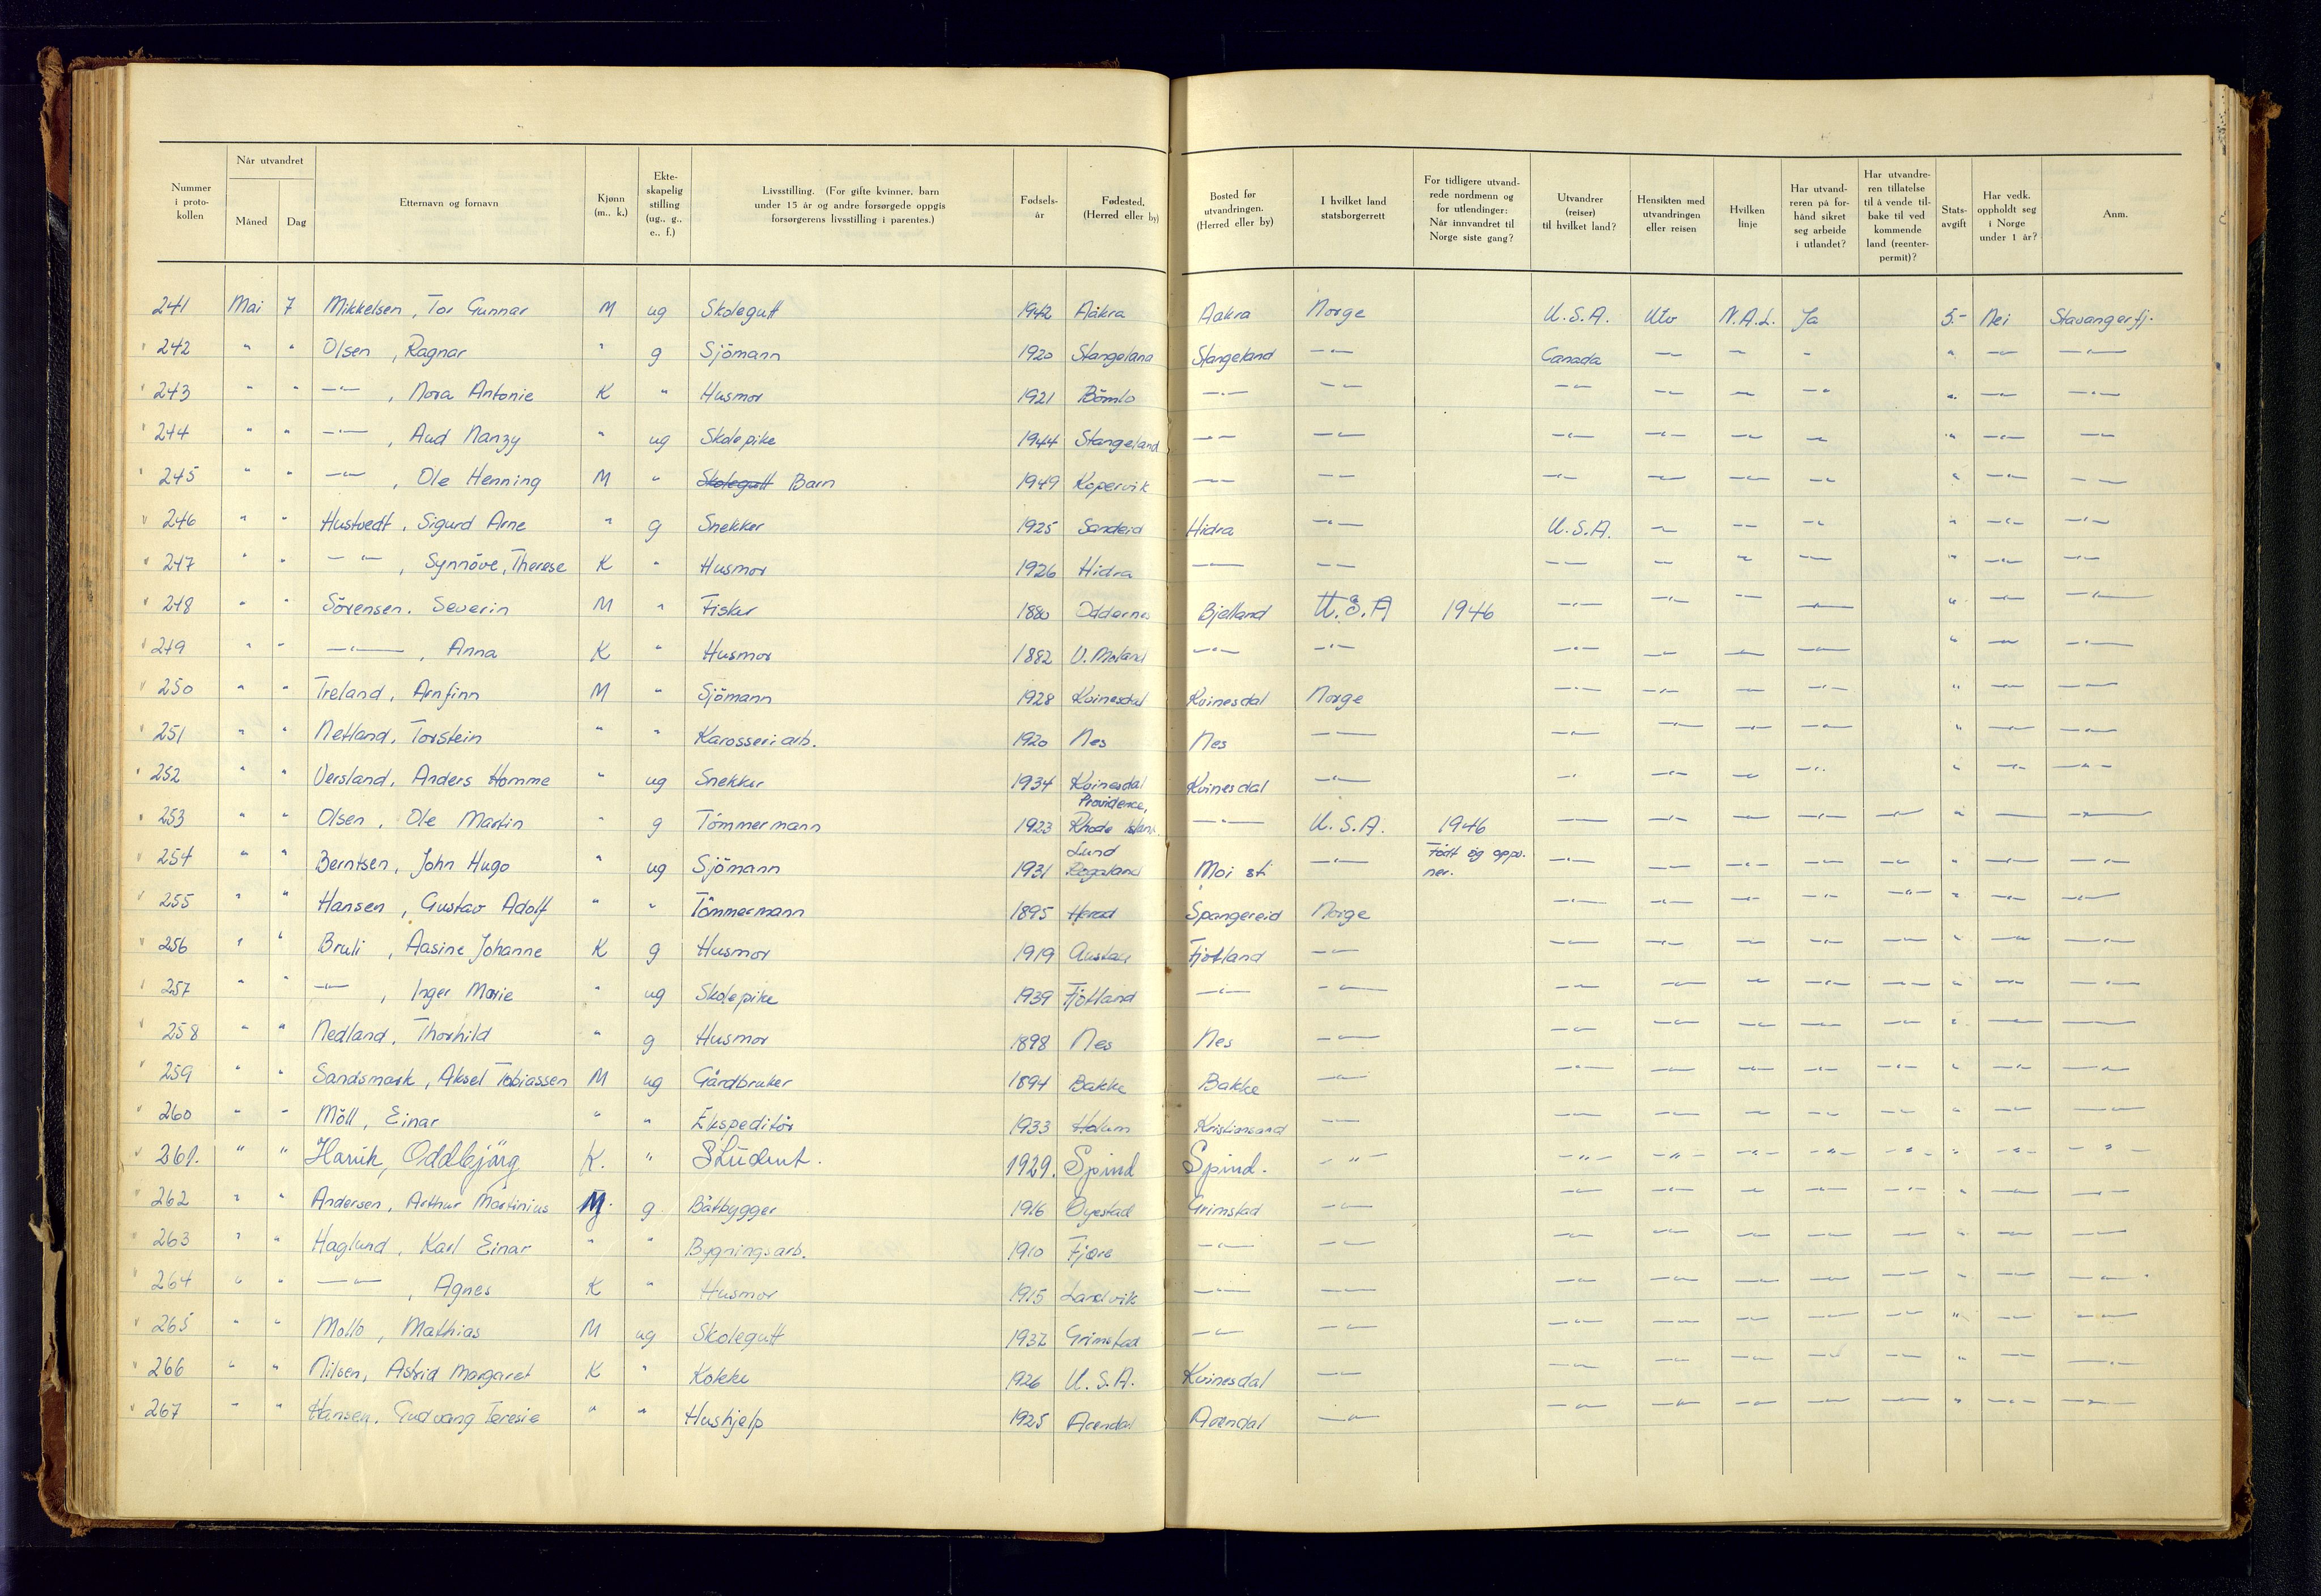 Nummer i protokollen | Når utvandret Måned | Dag | Etternavn og fornavn | Kjønn (m.. k.) | Ekteskapelig stilling (ug.. g.. e.. f.) | Livsstilling. (For gifte kvinner, barn under 15 år og andre forsørgede oppgis forsørgerens livsstilling i parentes.) | Fødselsår | Fødested, (Herred eller by) | Bosted før utvandringen. (Herred eller by) | I hvilket land statsborgerrett | For tidligere utvandrede nordmenn og for utlendinger: Når innvandret til Norge siste gang? | Utvandrer (reiser) til hvilket land? | Hensikten med utvandringen eller reisen | Hvilken linje | Har utvandreren på forhånd sikret seg arbeide i utlandet? | Har utvandreren tillatelse til å vende tilbake til vedkommende land (reenterpermit)? | Statsavgift | Har vedk. oppholdt seg i Norge under 1 år? | Anm.
241 Mai 7 Mikkelsen, Tor Gunnar M ug Skolegutt 1942 Aakra Aakra Norge U.S.A. Utv N.A.L. Ja 5.- Nei Stavangerfj.
242 " " Olsen, Ragnar " g Sjömann 1920 Stangeland Stangeland —"— Canada —"— —"— " " —"— —"—
243 " " —"—, Nora Antonie K " Husmor 1921 Bömlo —"— —"— —"— —"— —"— —"— " —"— —"—
244 " " —"—, Aud Nanzy " ug Skolepike 1944 Stangeland —"— —"— —"— —"— —"— —"— " —"— —"—
245 " " —"—, Ole Henning M " Skolegutt Barn 1949 Kopervik —"— —"— —"— —"— —"— —"— " —"— —"—
246 " " Hustvedt, Sigurd Arne " g Snekker 1925 Sandeid Hidra —"— U.S.A. —"— —"— —"— " —"— —"—
247 " " —"—, Synnöve, Therese K " Husmor 1926 Hidra —"— —"— —"— —"— —"— —"— " —"— —"—
248 " " Sörensen, Severin M " Fisker 1880 Oddernes Bjelland U.S.A 1946 —"— —"— —"— —"— " —"— —"—
249 " " —"—, Anna K " Husmor 1882 —"— —"— —"— —"— —"— —"— " —"— —"—
250 " " Treland, Arnfinn M " Sjömann 1928 Kvinesdal Kvinesdal Norge —"— —"— —"— —"— " —"— —"—
251 " " Netland, Torstein " " Karosseriarb. 1920 Nes Nes —"— —"— —"— —"— —"— " —"— —"—
252 " " Versland, Anders Homme " ug Snekker 1934 Kvinesdal Kvinesdal —"— —"— —"— —"— —"— " —"— —"—
253 " " Olsen, Ole Martin " g Tömmermann 1923 Providence, Rhode Island —"— U.S.A. 1946 —"— —"— —"— —"— —"— " —"— —"—
254 " " Berntsen, John Hugo " ug Sjömann 1931 Lund Rogaland Moi st —"— Födt og oppv. —"— —"— —"— —"— —"— " —"— —"—
255 " " Hansen, Gustav Adolf " " Tömmermann 1895 Herad Spangereid Norge —"— —"— —"— —"— —"— " —"— —"—
256 " " Bruli, Aasine Johanne K g Husmor 1919 Fjotland —"— —"— —"— —"— —"— —"— " —"— —"—
257 " " —"—, Inger Marie " ug Skolepike 1939 Fjotland —"— —"— —"— —"— —"— —"— —"— " —"— —"—
258 " " Nedland, Thorhild " g Husmor 1898 Nes Nes —"— —"— —"— —"— —"— —"— " —"— —"—
259 " " Sandsmark, Aksel Tobiassen M ug Gårdbruker 1894 Bakke Bakke —"— —"— —"— —"— —"— —"— " —"— —"—
260 " " Möll, Einar " " Ekspeditör 1933 Holum Kristiansand —"— —"— —"— —"— —"— —"— " —"— —"—
261. " " Oddbjörg K. " Student. 1929. Spind Spind. —"— —"— —"— —"— —"— —"— " —"— —"—
262 " " Andersen, Arthur Martinius M. g. Båtbygger 1916 Öyestad Grimstad —"— —"— —"— —"— —"— —"— " —"— —"—
263 " " Haglund, Karl Einar " " Bygningsarb. 1910 Fjære —"— —"— —"— —"— —"— —"— —"— " —"— —"—
264 " " —"—, Agnes K " Husmor 1915 Landvik —"— —"— —"— —"— —"— —"— —"— " —"— —"—
265 " " Mollo, Mathias M ug Skolegutt 1937 Grimstad —"— —"— —"— —"— —"— —"— —"— " —"— —"—
266 " " Nilsen, Astrid Margaret K " Kokke 1926 U.S.A. Kvinesdal —"— —"— —"— —"— —"— —"— " —"— —"—
267 " " Hansen, Gudvang Teresie " " Hushjelp 1925 Arendal Arendal —"— —"— —"— —"— —"— —"— " —"— —"—